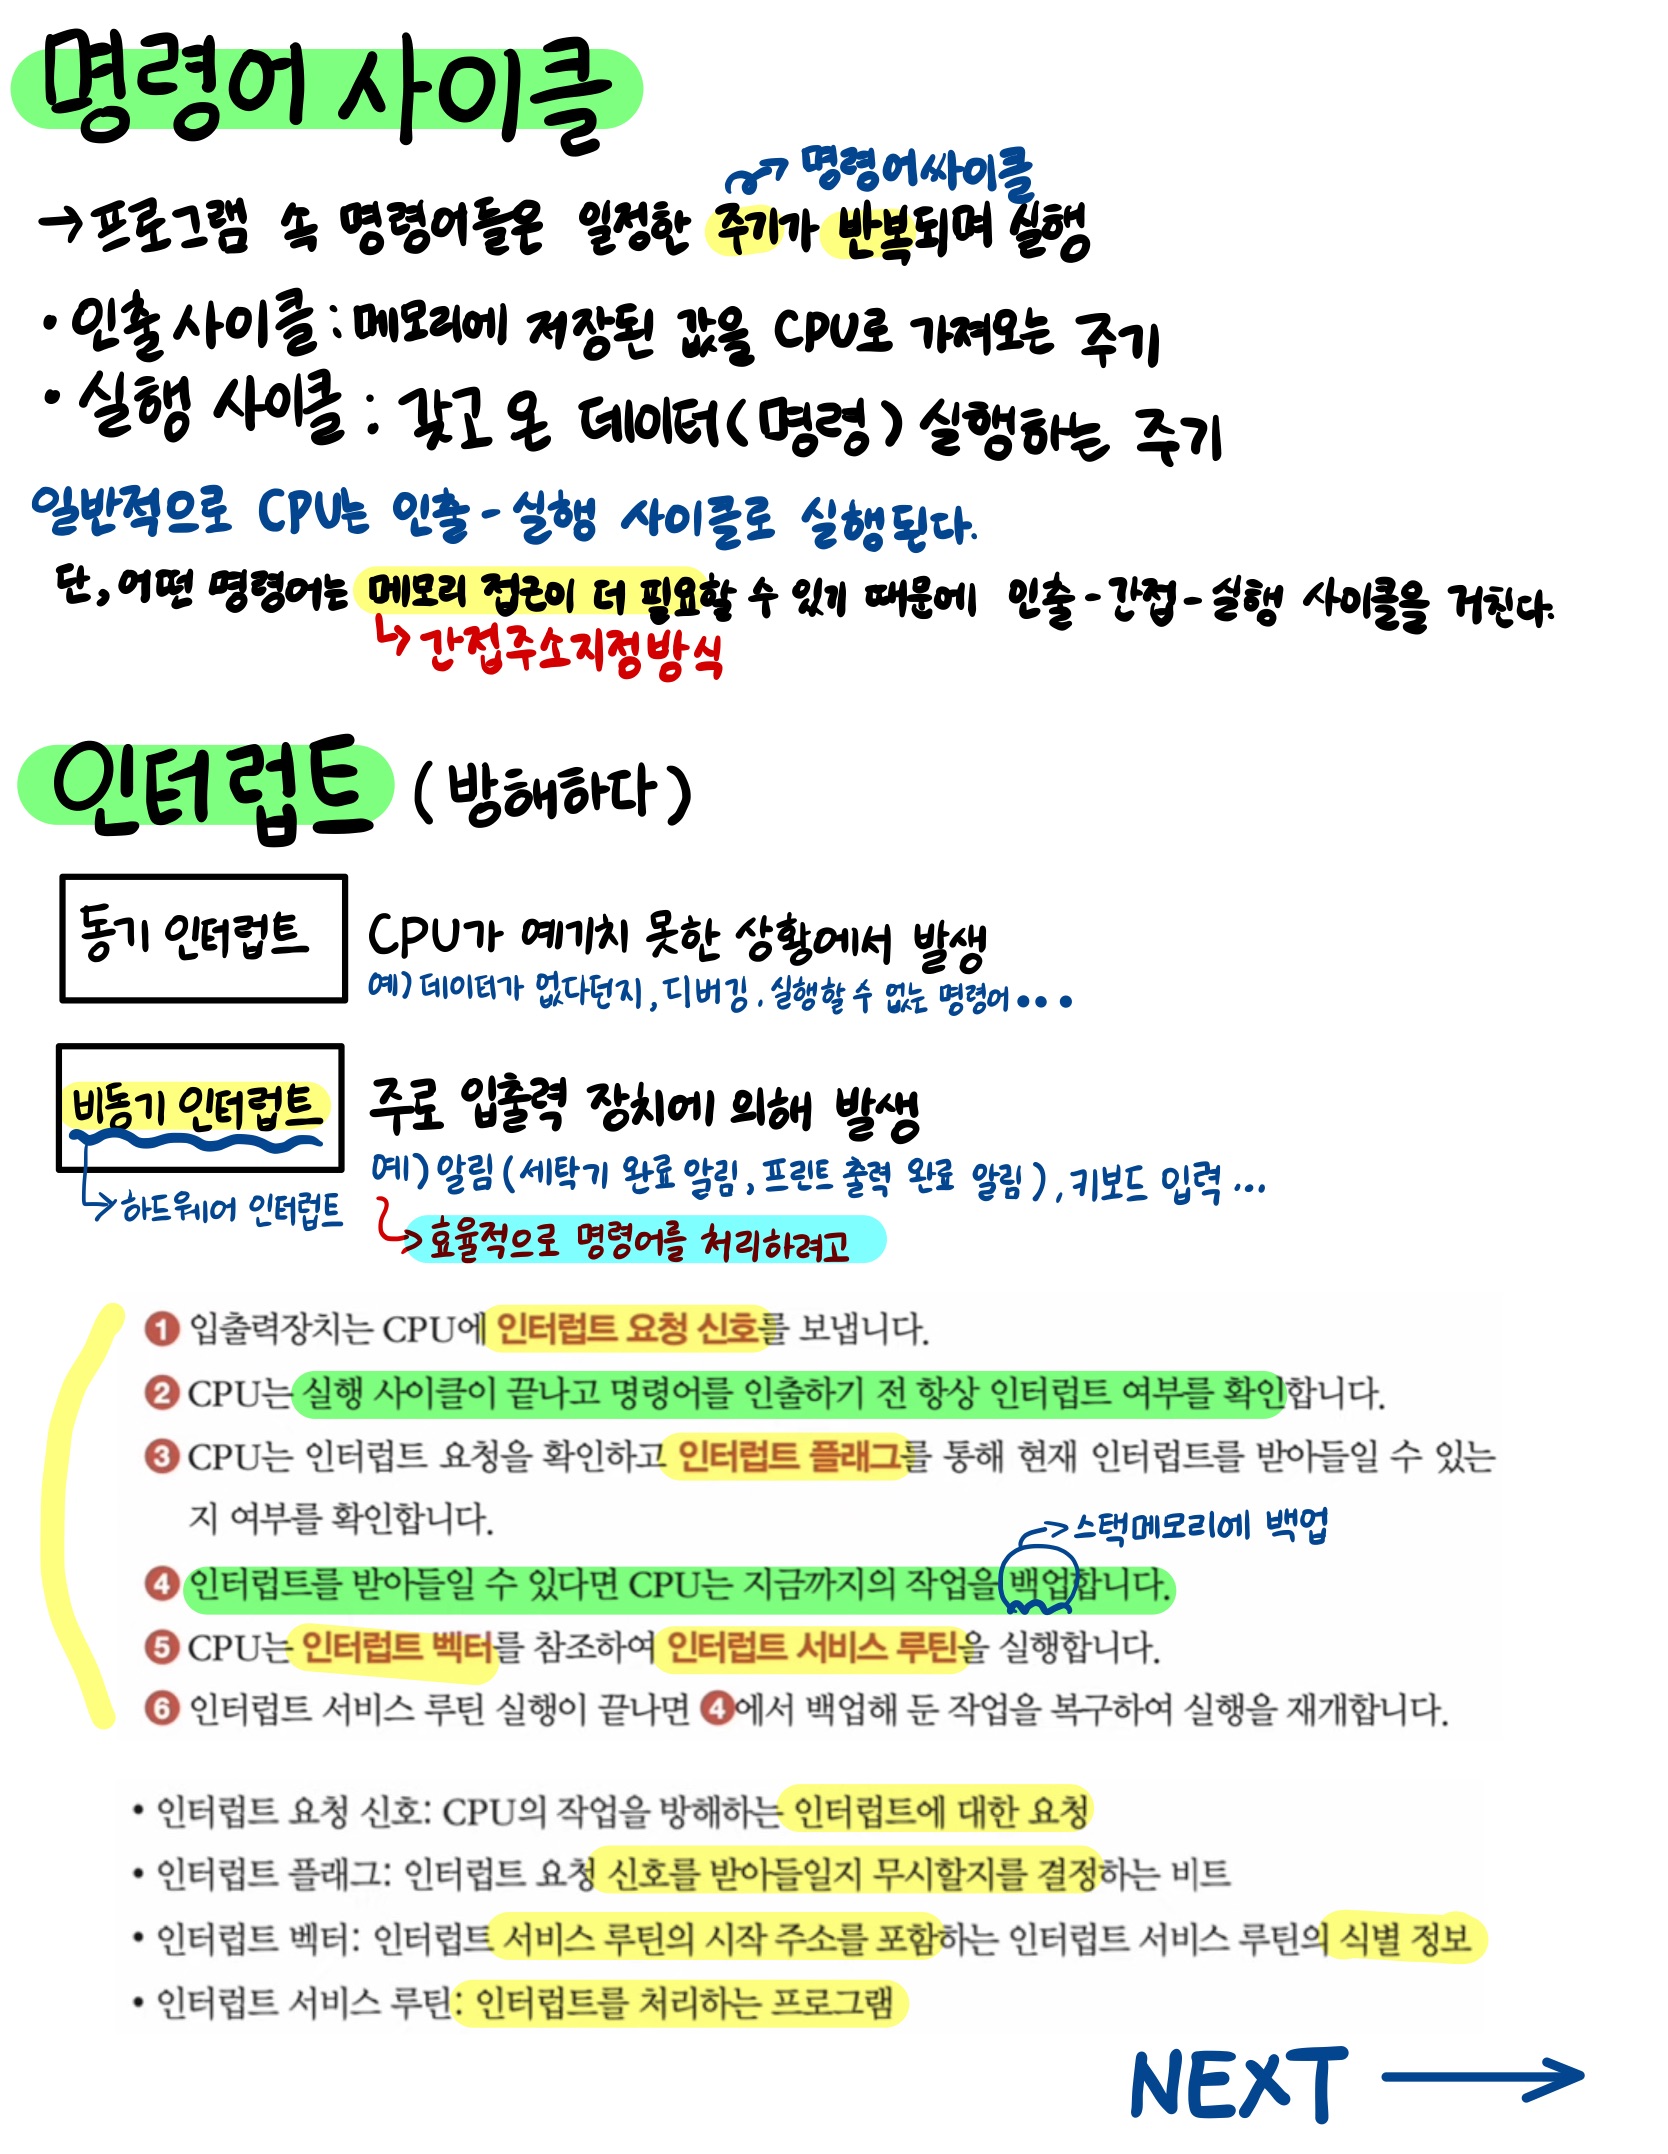 명령어 사이클
명령어싸이클
→ 프로그램 속 명령어들은 일정한 주기가 반복되며 실행
• 인출 사이클 : 메모리에 저장된 값을 CPU로 가져오는 주기
• 실행 사이클 : 갖고 온 데이터(명령) 실행하는 주기
일반적으로 CPU는 인출 - 실행 사이클로 실행된다.
단, 어떤 명령어는 메모리 접근이 더 필요할 수 있기 때문에 인출 - 간접 - 실행 사이클을 거친다.
↳ 간접주소지정방식
인터럽트 (방해하다)
동기 인터럽트
CPU가 예기치 못한 상황에서 발생
예) 데이터가 없다던지, 디버깅. 실행할 수 없는 명령어•••
비동기 인터럽트
주로 입출력 장치에 의해 발생
예) 알림 (세탁기 완료 알림, 프린트 출력 완료 알림), 키보드 입력 …
↳ 하드웨어 인터럽트
↳ 효율적으로 명령어를 처리하려고
❶ 입출력장치는 CPU에 인터럽트 요청 신호를 보냅니다.
❷ CPU는 실행 사이클이 끝나고 명령어를 인출하기 전 항상 인터럽트 여부를 확인합니다.
❸ CPU는 인터럽트 요청을 확인하고 인터럽트 플래그를 통해 현재 인터럽트를 받아들일 수 있는
지 여부를 확인합니다.
→ 스택메모리에 백업
❹ 인터럽트를 받아들일 수 있다면 CPU는 지금까지의 작업을 백업합니다.
❺ CPU는 인터럽트 벡터를 참조하여 인터럽트 서비스 루틴을 실행합니다.
❻ 인터럽트 서비스 루틴 실행이 끝나면 ❹에서 백업해 둔 작업을 복구하여 실행을 재개합니다.
• 인터럽트 요청 신호: CPU의 작업을 방해하는 인터럽트에 대한 요청
• 인터럽트 플래그: 인터럽트 요청 신호를 받아들일지 무시할지를 결정하는 비트
• 인터럽트 벡터: 인터럽트 서비스 루틴의 시작 주소를 포함하는 인터럽트 서비스 루틴의 식별 정보
• 인터럽트 서비스 루틴: 인터럽트를 처리하는 프로그램
NEXT →